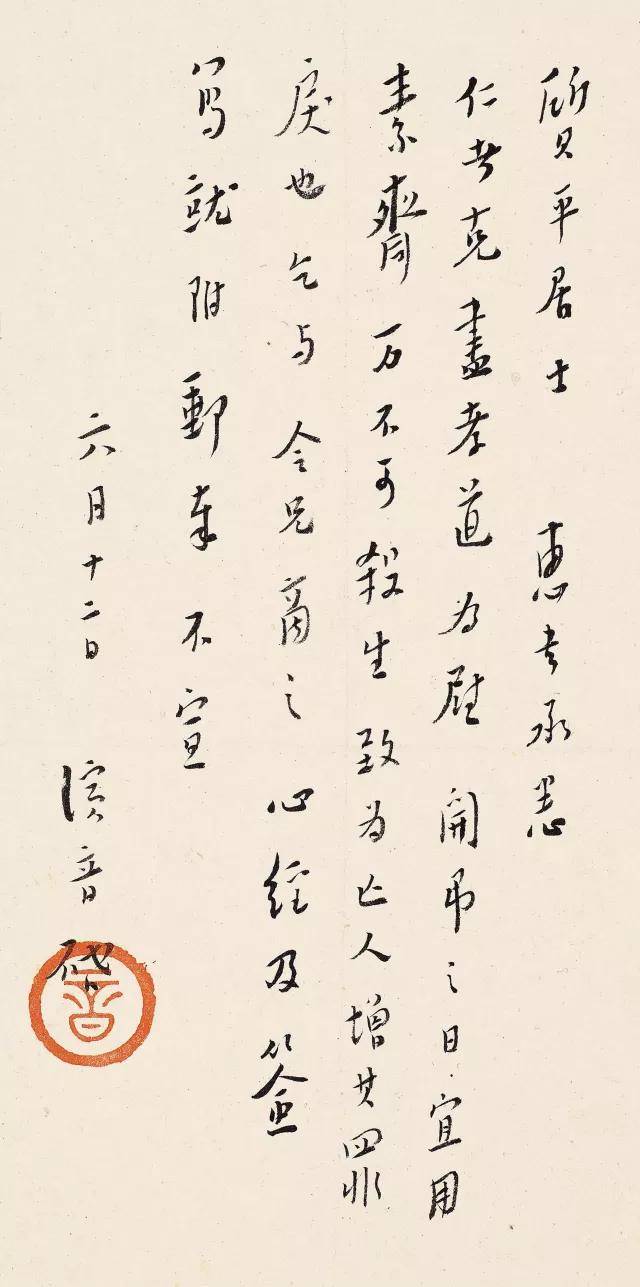 質平居士 惠書承悉
仁者克盡孝道為慰開弔之日宜用
素齋万不可殺生致為亡人增其罪
戾也乞与令兄商之心經及簽
寫就附郵奉不宣
六月十二日 演音啓
音